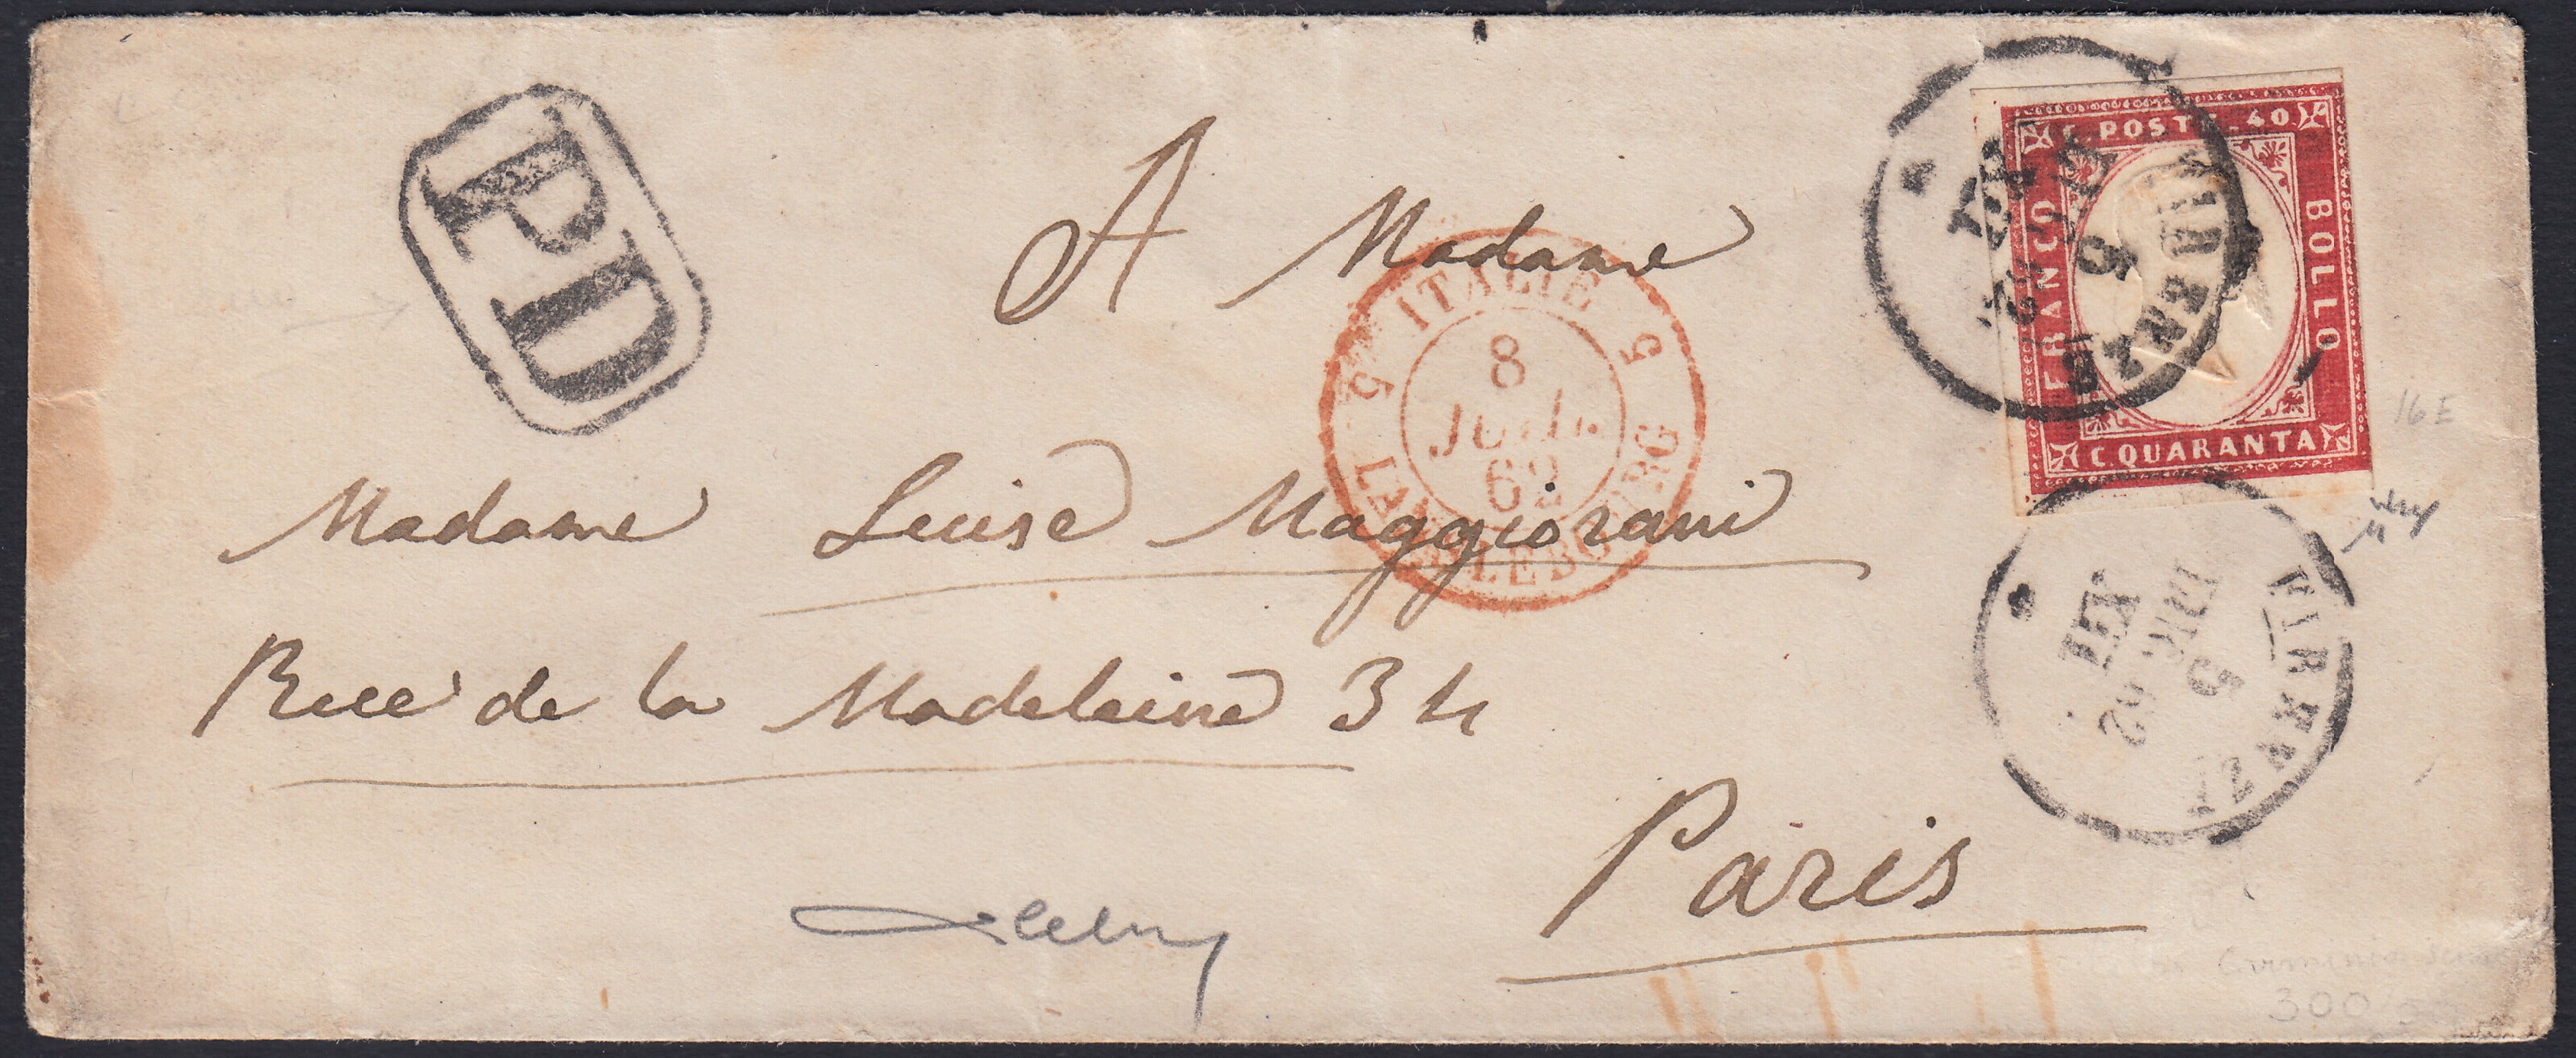 PD
A Madame
C. POSTE. 40
FRANCO
BOLLO
C. QUARANTA
FIRENZE
5
62
ITALIE
5 5
8
JUIL.
62
LANSLEBOURG
16E
Madame Luise Maggiorani
Rue de la Madeleine 34
FIRENZE
5
62
XII
Paris
300